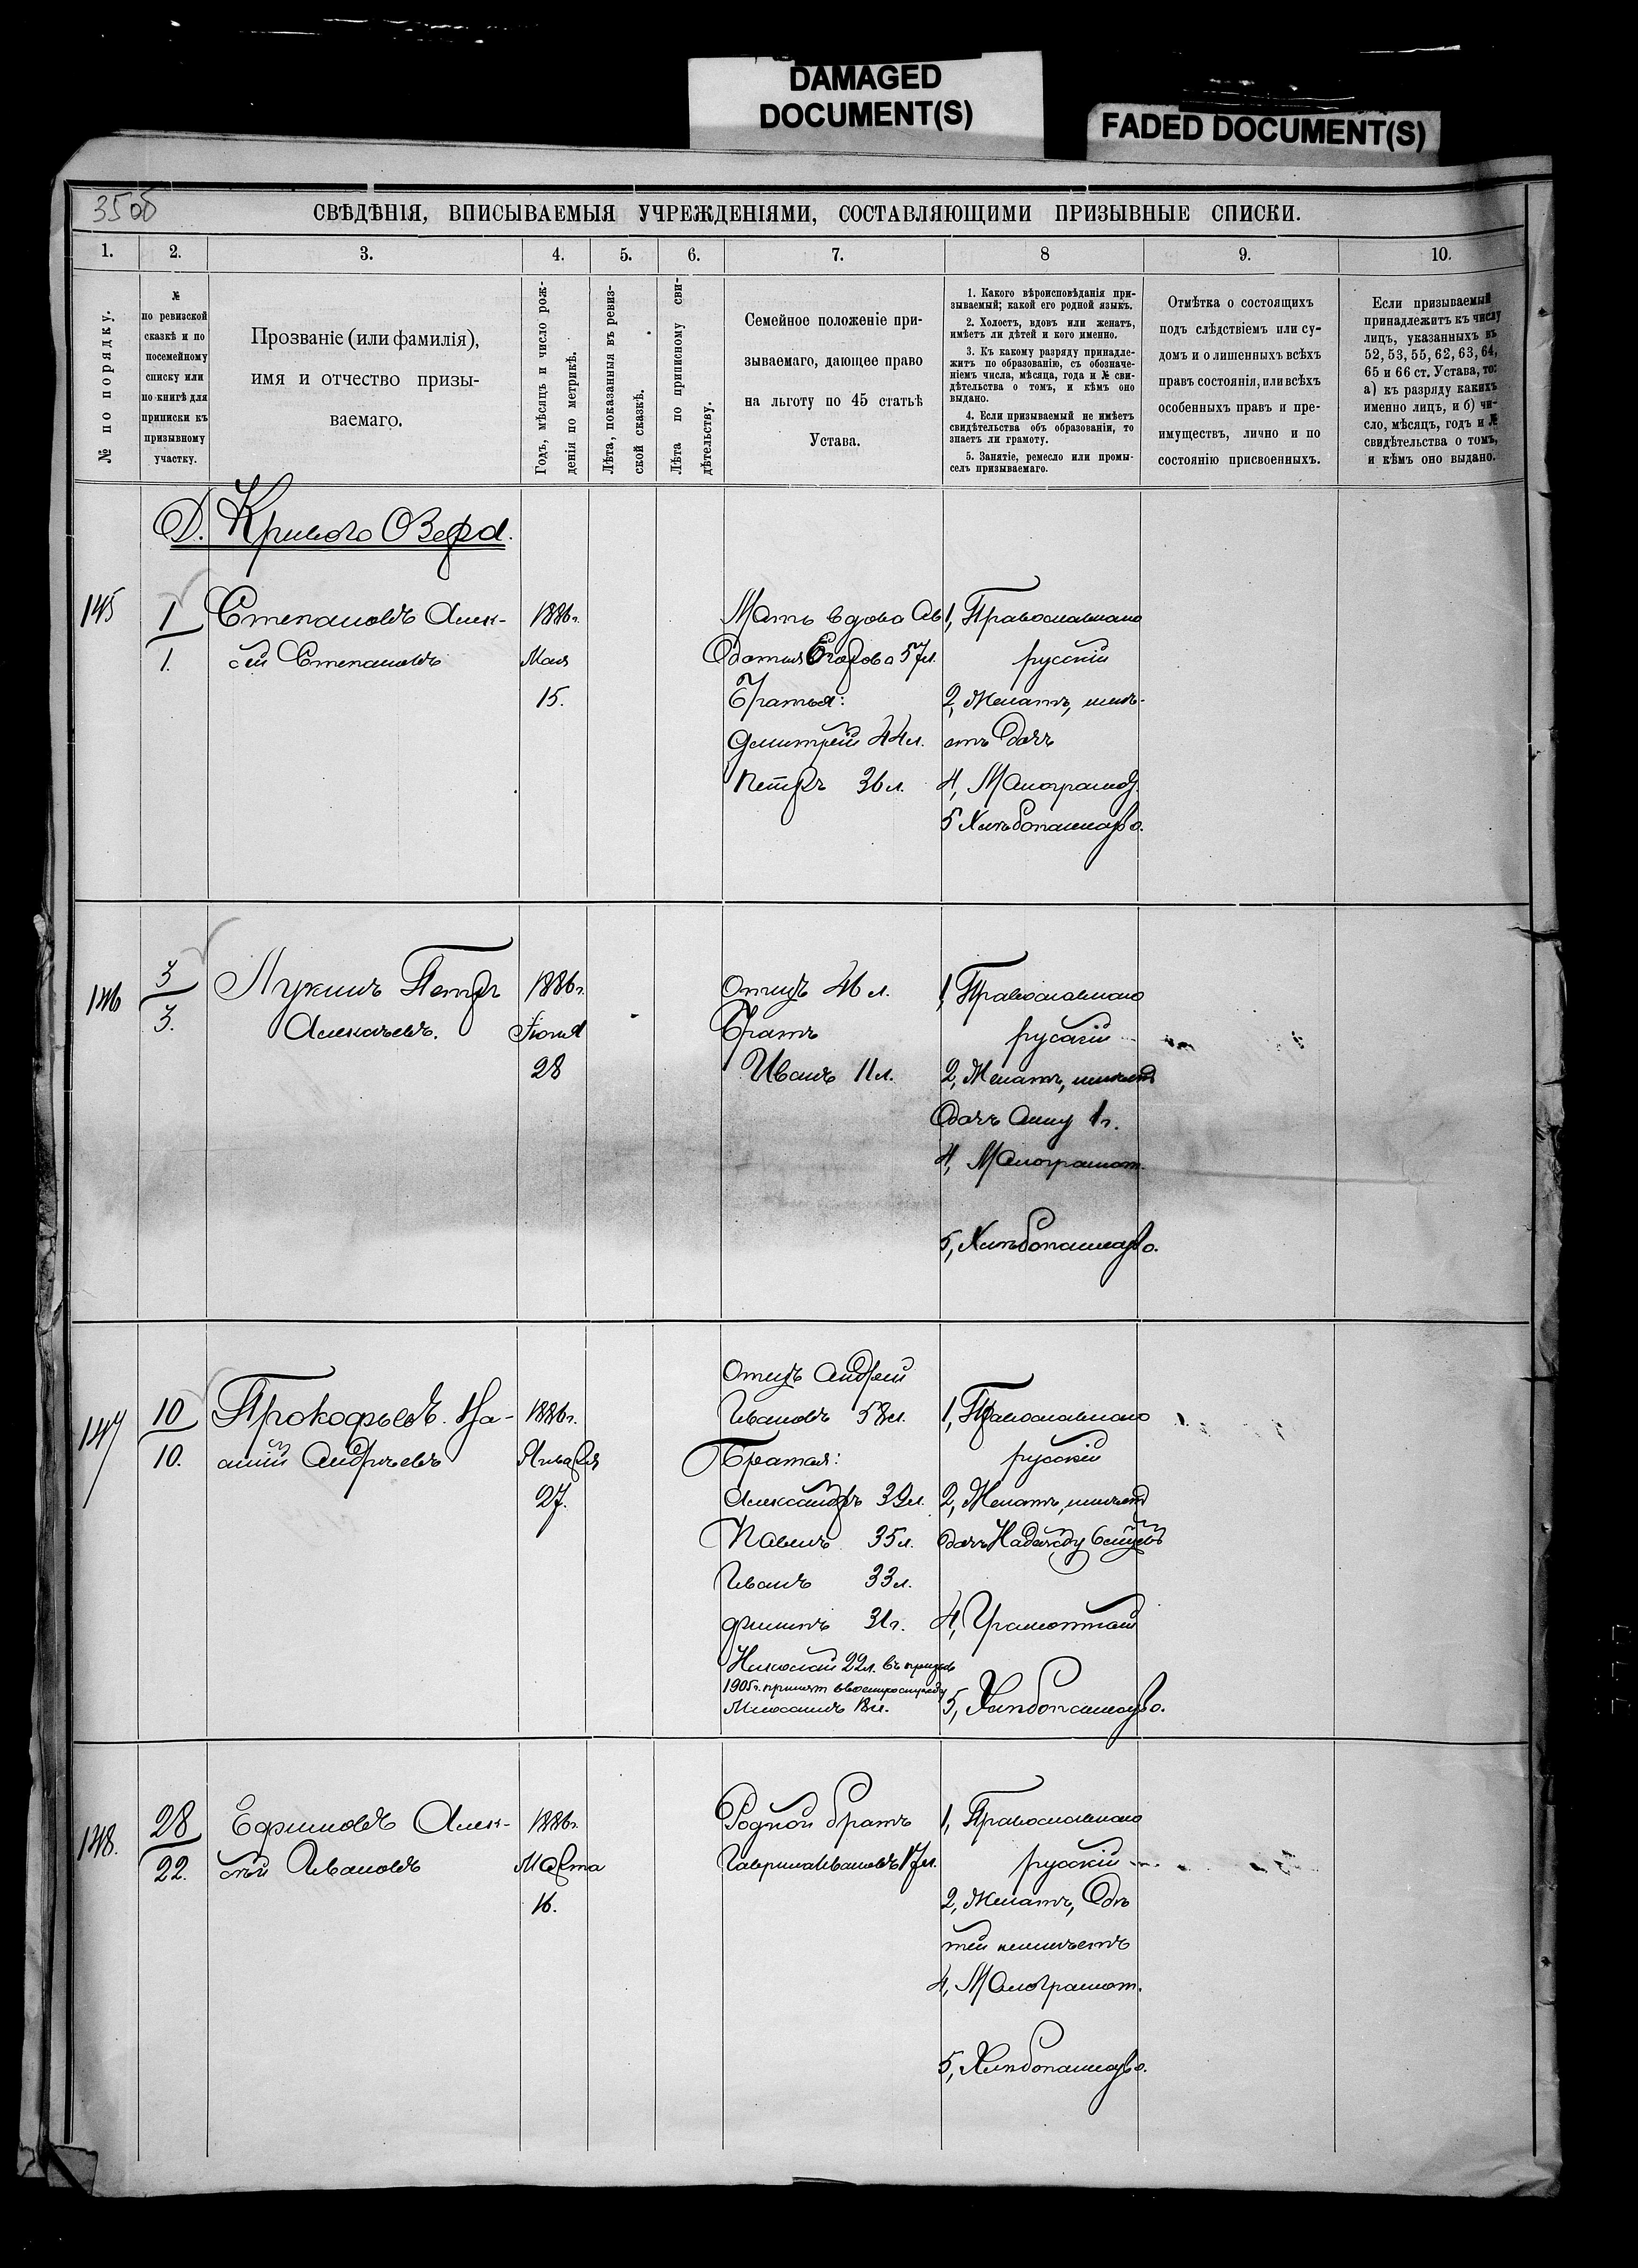 DAMAGED
DOCUMENT(S)
FADED DOCUMENT(S)
35 об
СВѢДѢНІЯ, ВПИСЫВАЕМЫЯ УЧРЕЖДЕНІЯМИ, СОСТАВЛЯЮЩИМИ ПРИЗЫВНЫЕ СПИСКИ.
1. 2. 3. 4. 5. 6. 7. 8 9. 10.
№ по порядку.
№
по ревизской
сказкѣ и по
посемейному
списку или
по книгѣ для
приписки къ
призывному
участку.
Прозваніе (или фамилія),
имя и отчество призы-
ваемаго.
Годъ, мѣсяцъ и число рож-
денія по метрикѣ.
Лѣта, показанныя въ ревиз-
ской сказкѣ.
Лѣта по приписному сви-
дѣтельству.
Семейное положеніе при-
зываемаго, дающее право
на льготу по 45 статьѣ
Устава.
1. Какого вѣроисповѣданія при-
зываемый; какой его родной языкъ.
2. Холостъ, вдовъ или женатъ,
имѣетъ ли дѣтей и кого именно.
3. Къ какому разряду принадле-
житъ по образованію, съ обозначе-
ніемъ числа, мѣсяца, года и № сви-
дѣтельства о томъ, и кѣмъ оно
выдано.
4. Если призываемый не имѣетъ
свидѣтельства объ образованіи, то
знаетъ ли грамоту.
5. Занятіе, ремесло или промы-
селъ призываемаго.
Отмѣтка о состоящихъ
подъ слѣдствіемъ или су-
домъ и о лишенныхъ всѣхъ
правъ состоянія, или всѣхъ
особенныхъ правъ и пре-
имуществъ, лично и по
состоянію присвоенныхъ.
Если призываемый
принадлежитъ къ числу
лицъ, указанныхъ въ
52, 53, 55, 62, 63, 64,
65 и 66 ст. Устава, то:
а) къ разряду какихъ
именно лицъ, и б) чи-
сло, мѣсяцъ, годъ и №
свидѣтельства о томъ,
и кѣмъ оно выдано.
Д. Кривого Озера.
145
1
1.
Степановъ Алек-
сѣй Степановъ
1886г.
Мая
15.
Мать вдова Ав
дотья Егорова 57л.
Братья:
Дмитрій 44л.
Петръ 36л.
1, Православнаго
русскій
2, Женатъ, имѣ-
етъ дочь
4, Малограмот.
5 Хлѣбопашество.
146
3
3.
Лукинъ Петръ
Алексѣевъ.
1886г.
Іюня
28
Отецъ 46 л.
Братъ
Иванъ 11л.
1, Православнаго
русскій
2, Женатъ, имѣетъ
дочь Анну 1г.
4, Малограмот.
5, Хлѣбопашество.
147
10
10.
Прокофьевъ
Андреевъ
1886г.
Января
27.
Отецъ Андрей
Ивановъ 58л.
Братья:
Александръ 39л.
Павелъ 35л.
Иванъ 33л.
Филипъ 31г.
Николай 22л. въ призывъ
1905г. принят в военную службу
18л.
1, Православнаго
русскій
2, Женатъ, имѣетъ
дочь Надежду 6 мѣсяцевъ
4, Грамотный
5, Хлѣбопашество.
148.
28
22.
Ефимовъ Алек-
сѣй Ивановъ
1886г.
Марта
16.
Родной братъ
Гаврила Ивановъ 17л.
1, Православнаго
русскій
2, Женатъ, дѣ
тей неимѣетъ
4, Малограмот.
5, Хлѣбопашество.